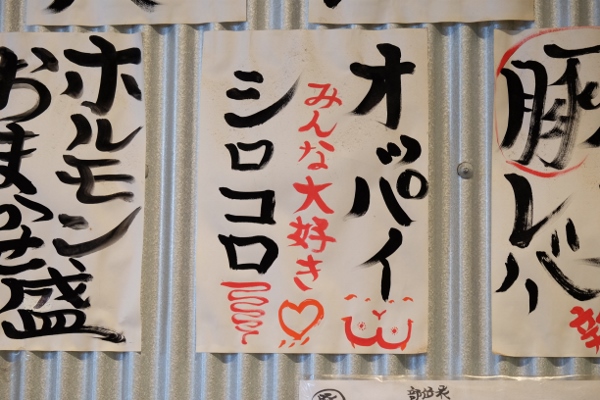 豚
レバ
オッパイ
みんな大好き
シロコロ
ホルモン
おまかせ盛